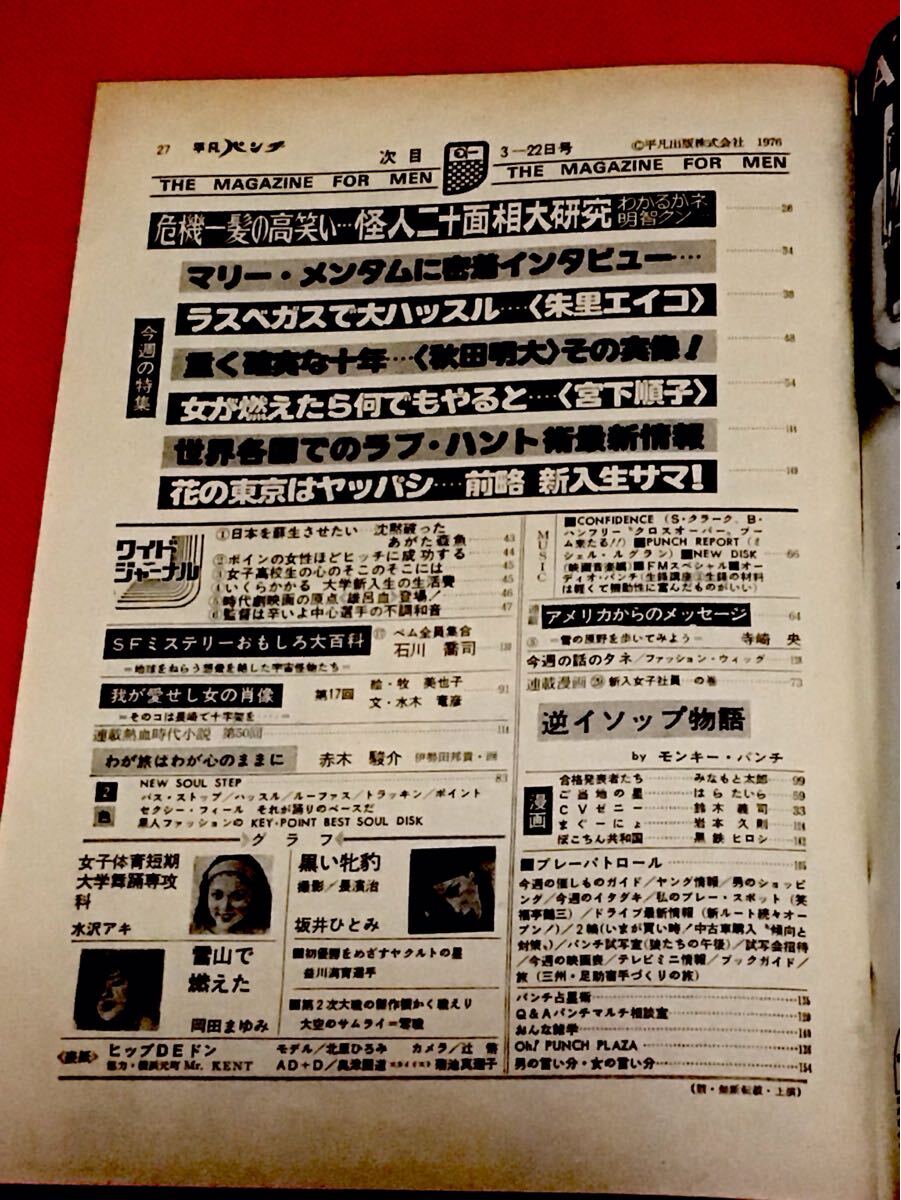 27 平凡パンチ 次目 3－22日号 ©平凡出版株式会社 1976
THE MAGAZINE FOR MEN THE MAGAZINE FOR MEN
今週の特集
危機一髪の高笑い…怪人二十面相大研究 わかるかネ明智クン
マリー・メンタムに密着インタビュー…
34
ラスベガスで大ハッスル…〈朱里エイコ〉
重く確実な十年…〈秋田明大〉その実像！
女が燃えたら何でもやると…〈宮下順子〉
54
世界各国でのラブ・ハント術最新情報
花の東京はヤッパシ…前略 新入生サマ！
ワイドジャーナル
①日本を蘇生させたい 沈黙破った
あがた森魚 43
②ボインの女性ほどヒッチに成功する 44
③女子高校生の心のそこのそこには 45
④いくらかかる 大学新入生の生活費 45
⑤時代劇映画の原点《雄呂血》登場！ 46
⑥監督は辛いよ中心選手の不調和音 47
SFミステリーおもしろ大百科 ベム全員集合
石川 喬司
＝地球をねらう想像を絶した宇宙怪物たち＝
我が愛せし女の肖像 第17回 絵・牧 美也子
文・水木 竜彦 91
＝そのコは長崎で十字架を……＝
連載熱血時代小説 第50回
わが旅はわが心のままに 赤木 駿介 伊勢田邦貴・画
2色
NEW SOUL STEP 83
バス・ストップ／ハッスル／ルーファス／トラッキン／ポイント
セクシー・フィール それが踊りのベースだ
黒人ファッションの KEY・POINT BEST SOUL DISK
グラフ
女子体育短期
大学舞踊専攻
科
水沢アキ
黒い牝豹
撮影／長濱治
坂井ひとみ
雪山で
燃えた
岡田まゆみ
■初優勝をめざすヤクルトの星
益川満育選手
■第2次大戦の傑作機かく戦えり
大空のサムライ＝零戦
〈表紙〉 ヒップDEドン モデル／北原ひろみ カメラ／辻
協力・横浜元町 Mr. KENT AD＋D／奥津国道 スタイリスト 菊池真理子
MUSIC
■CONFIDENCE（S・クラーク、B・
ハンフリー“クロスオーバー、ブー
ム来たる!!）■PUNCH REPORT（ミ
シェル・ルグラン）■NEW DISK
（映画音楽編）■FMスペシャル■オー
ディオ・パンチ（生録講座②生録の材料
は軽くて機動性に富んだものがいい）
66
アメリカからのメッセージ 64
＝雪の原野を歩いてみよう＝ 寺崎 央
今週の話のタネ／ファッション・ウィッグ
連載漫画 新入女子社員 の巻 73
逆イソップ物語
by モンキー・パンチ
漫画
合格発表者たち みなもと太郎 99
ご当地の星 はらたいら 59
CVゼニー 鈴木義司 33
まぐーにょ 岩本久則
ぽこちん共和国 黒鉄ヒロシ
■プレーパトロール
今週の催しものガイド／ヤング情報／男のショッピ
ング／今週のイタダキ／私のプレー・スポット（笑
福亭鶴三）／ドライブ最新情報（新ルート続々オー
プン！）／2輪（いまが買い時！中古車購入“傾向と
対策〟）／パンチ試写室（狼たちの午後）／試写会招待
／今週の映画表／テレビミニ情報／ブックガイド／
旅（三州・足助宿手づくりの旅）
パンチ占星術
Q&Aパンチマルチ相談室
おんな雑学
Oh! PUNCH PLAZA
男の言い分・女の言い分 154
（禁・無断転載・上演）